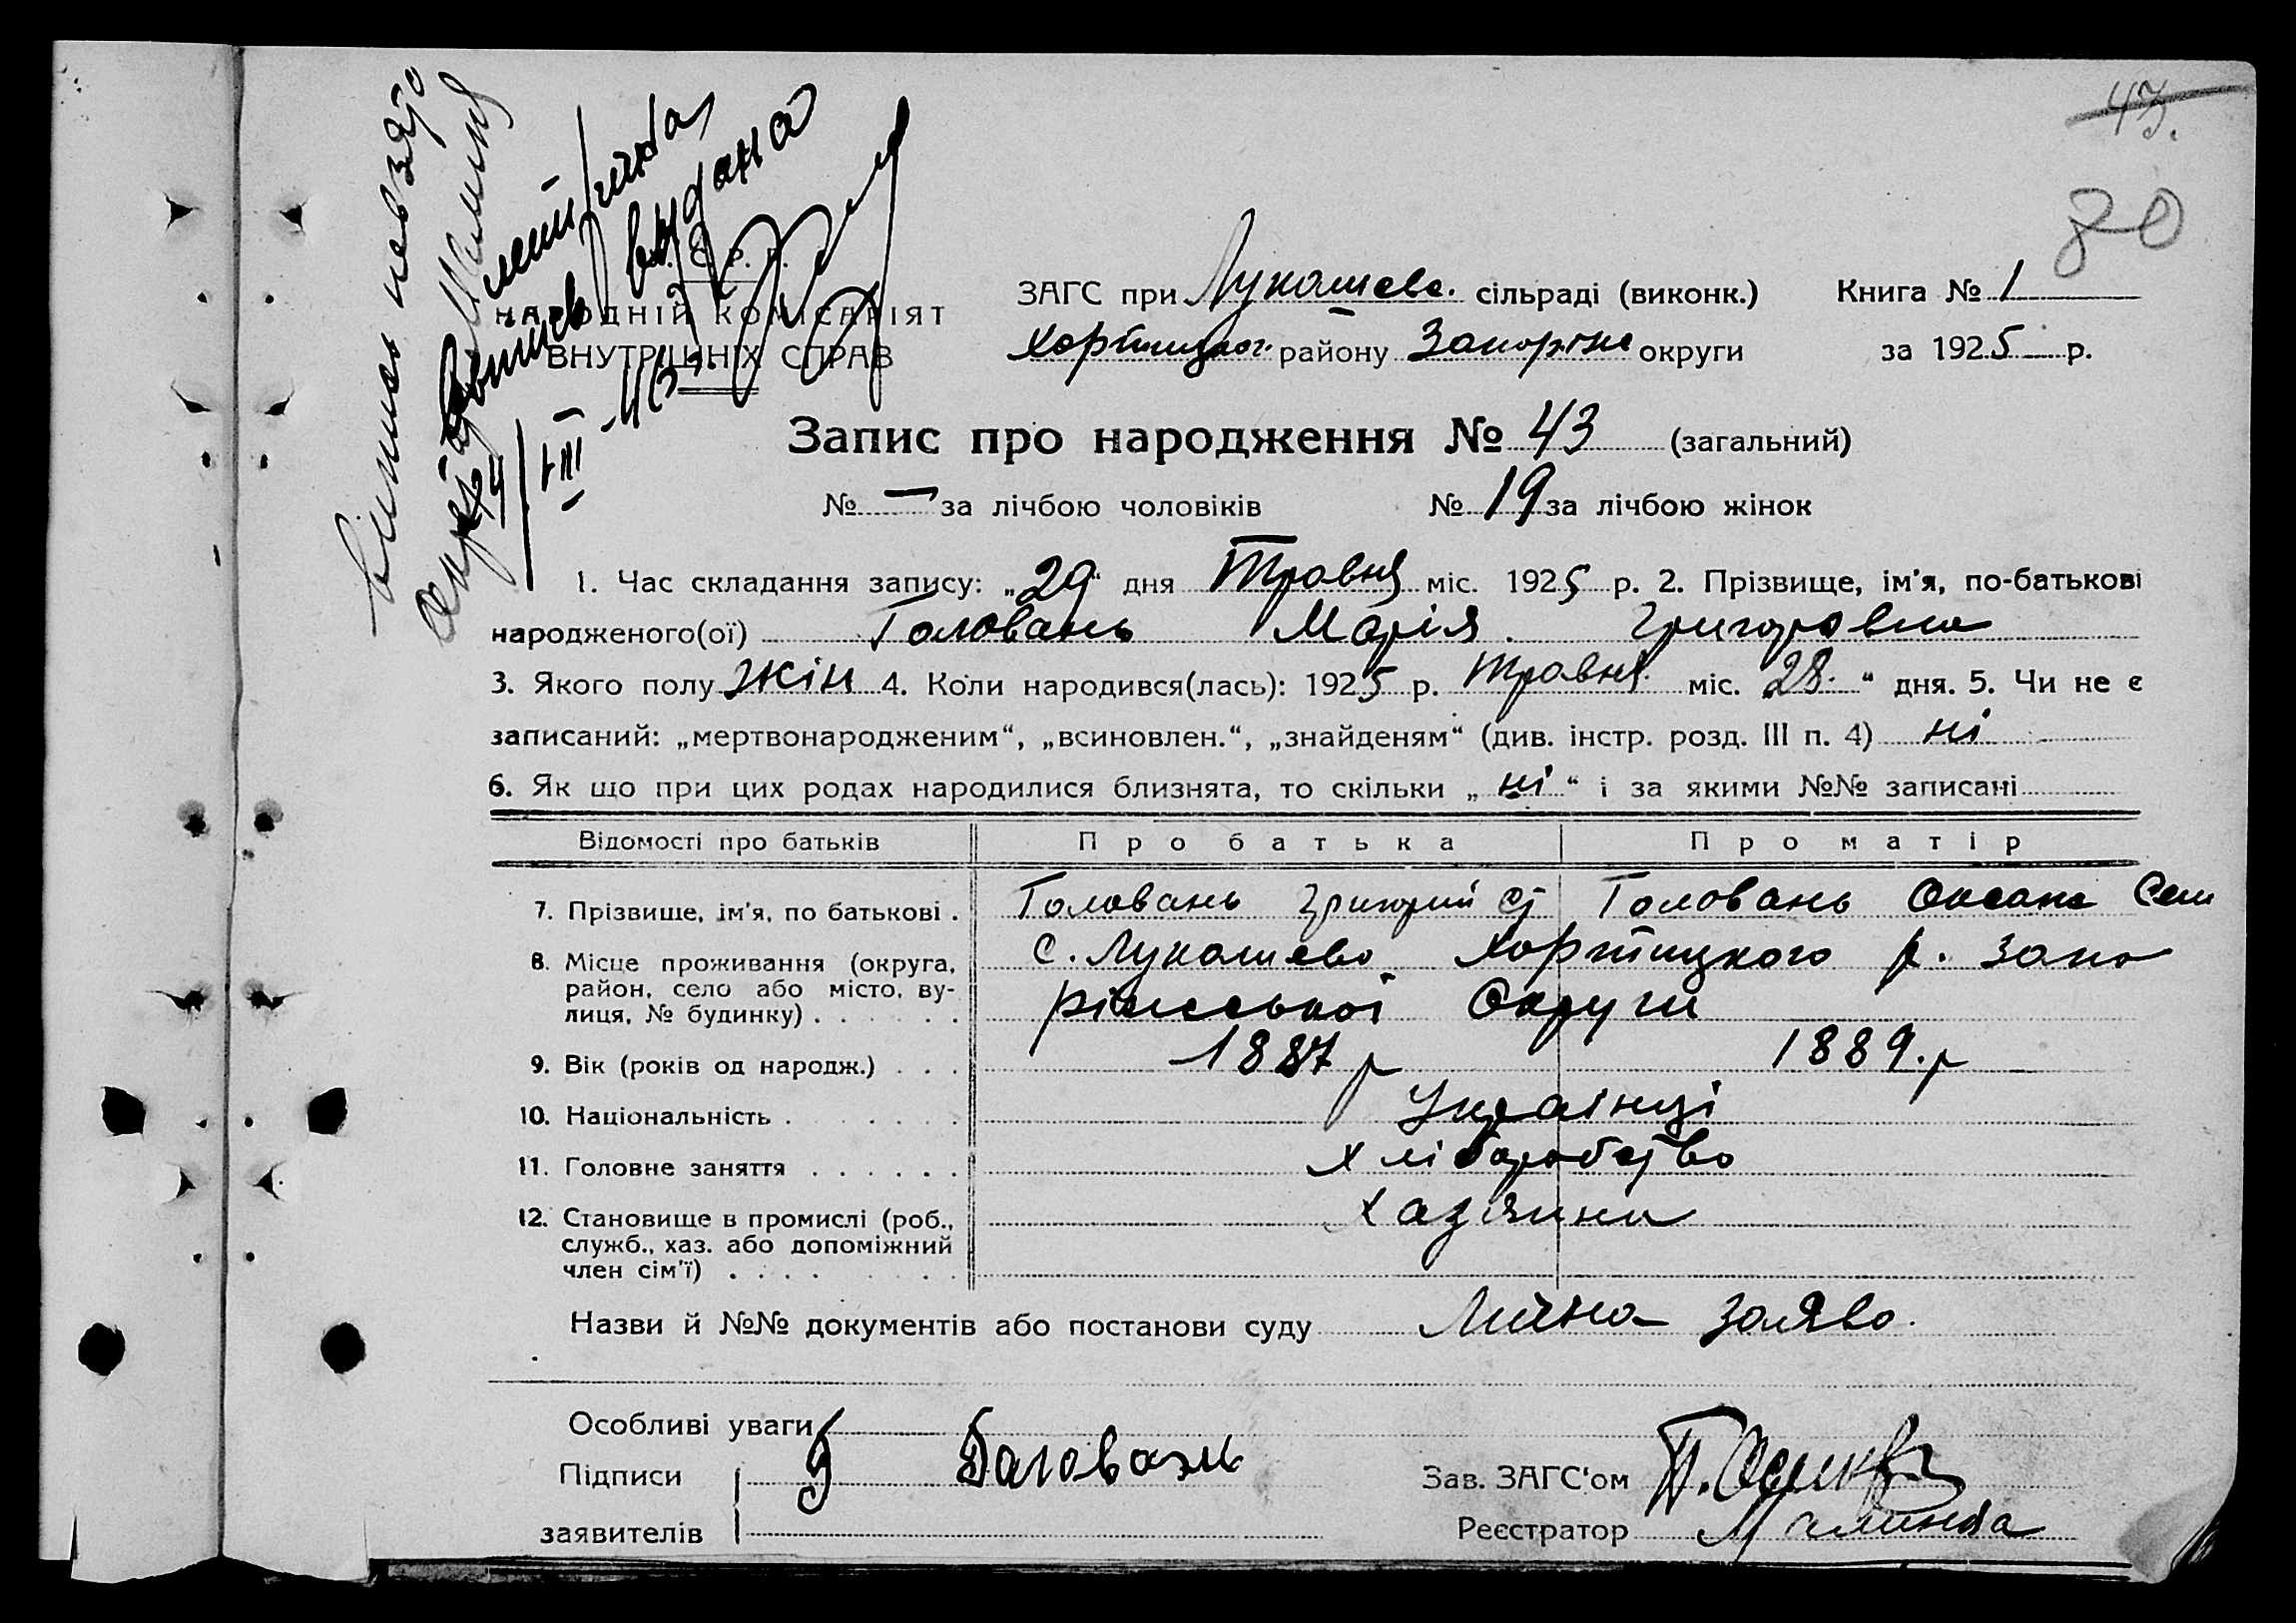 43.
80
метрична
випись видана
НАРОДНІЙ КОМІСАРІЯТ
ВНУТРІШНІХ СПРАВ
ЗАГС при Лукашеве. сільраді (виконк.) Книга № 1
Хортицког. району Запоріже округи за 1925 р.
Запис про народження № 43 (загальний)
№ — за лічбою чоловіків № 19 за лічбою жінок
1. Час складання запису: „29“ дня Травня міс. 1925 р. 2. Прізвище, ім'я, по-батькові
народженого(ої) Головань Марія Григоровна
3. Якого полу жін 4. Коли народився(лась): 1925 р. Травня міс. „28“ дня. 5. Чи не є
записаний: „мертвонародженим“, „всиновлен.“, „знайденям“ (див. інстр. розд. III п. 4) ні
6. Як що при цих родах народилися близнята, то скільки „ні“ і за якими №№ записані
Відомості про батьків Про батька Про матір
7. Прізвище, ім'я, по батькові . Головань Григорий Головань Оксана Сем
8. Місце проживання (округа, район, село або місто, вулиця, № будинку) с. Лукашево Хортицкого р. Запо
ріжської Округи
9. Вік (років од народж.) 1887 р 1889. р
10. Національність Українці
11. Головне заняття Хліборобство
12. Становище в промислі (роб., служб., хаз. або допоміжний член сім'ї) Хазяини
Назви й №№ документів або постанови суду Лична заява.
Особливі уваги
Підписи Головань Зав. ЗАГС'ом
заявителів Реєстратор